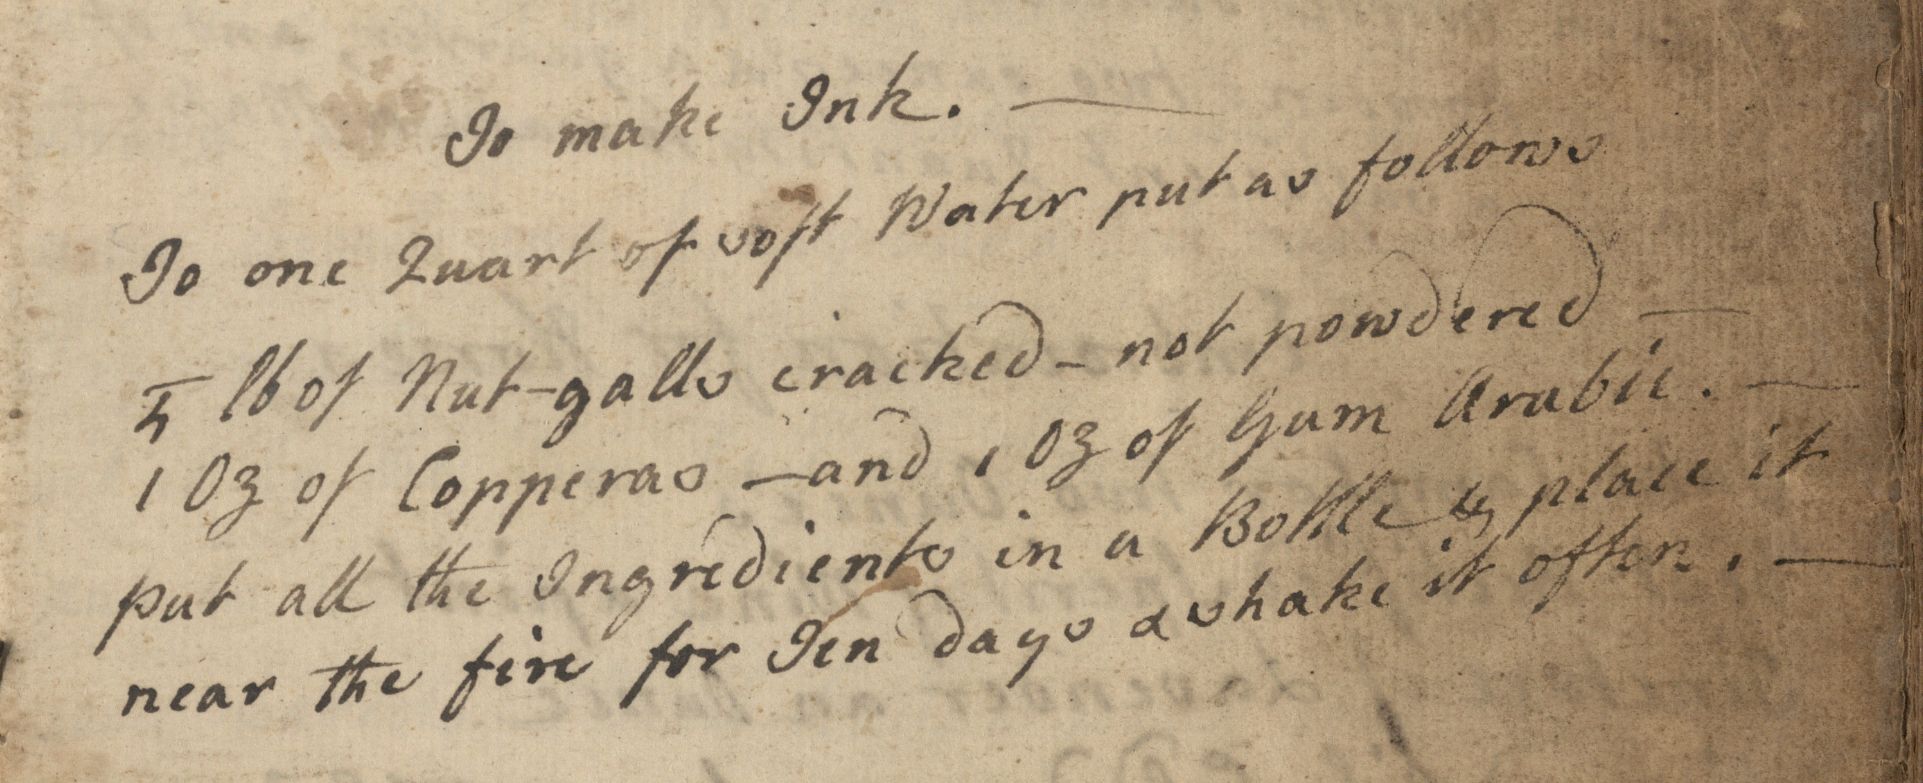 To make Ink. —
To one Quart of soft Water put as follows
¼ lb of Nut-galls cracked - not powdered —
1 Oz of Copperas — and 1 Oz of Gum Arabic. —
put all the Ingredients in a Bottle & place it
near the fire for Ten days & shake it often. —